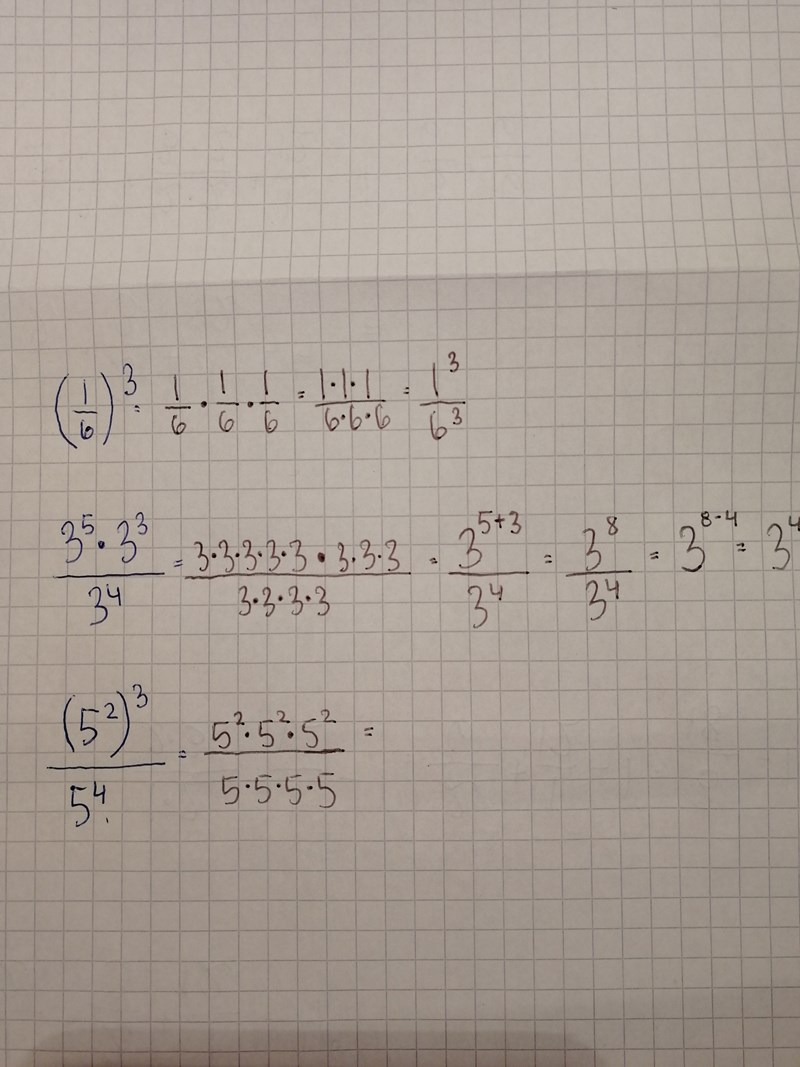 (1/6)³ = 1/6 · 1/6 · 1/6 = 1·1·1/6·6·6 = 1³/6³
3⁵·3³/3⁴ = 3·3·3·3·3·3·3·3/3·3·3·3 = 3⁵⁺³/3⁴ = 3⁸/3⁴ = 3⁸⁻⁴ = 3⁴
(5²)³/5⁴ = 5²·5²·5²/5·5·5·5 =